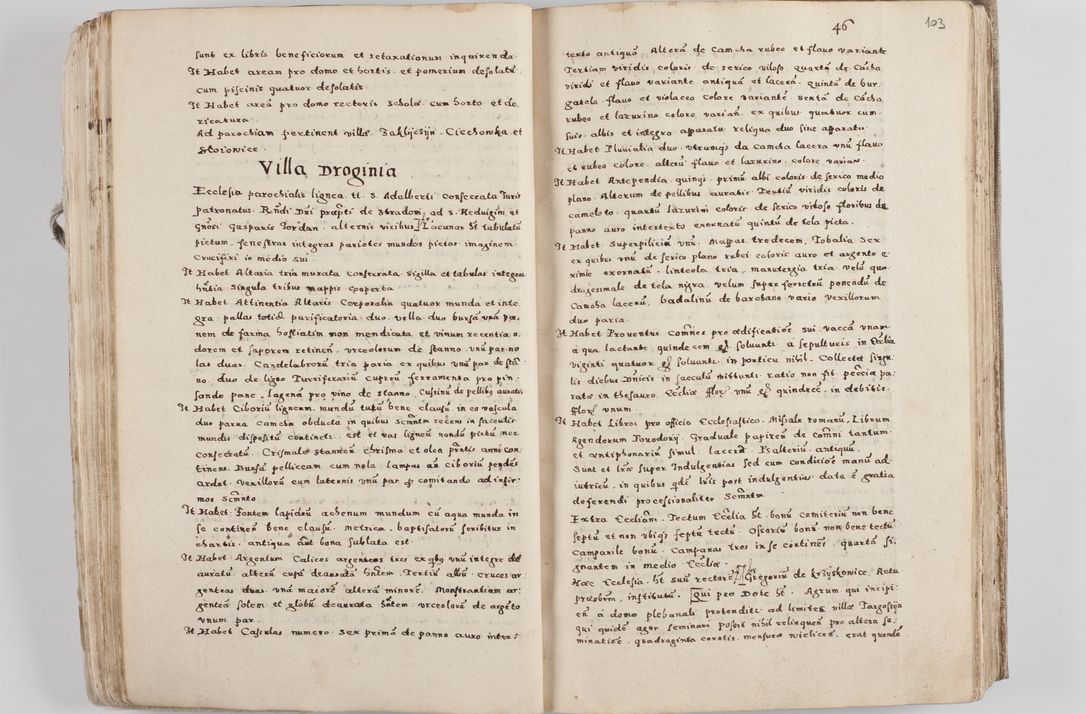 sunt ex libris beneficiorum et retaxationum inquirenda.
It Habet aream pro domo et hortis. et pomerium desolatū
cum piscinis quatuor desolatis
It Habet areā pro domo rectoris scholæ cum horto et de
ricatura.
Ad parochiam pertinent villæ Zaklyczyn. Ciechowka et
Stoiowice.
Villa Droginia
Ecclesia parochialis lignea. tt. S. Adalberti consecrata Juris
patronatus. Rndi Dni præpti de Stradom, ad S. Heduigim et
Gnosi Gasparis Jordan. alternis vicibus. Lacunar ht tabulatū
pictum, fenestras integras parietes mundos pictos imaginem
Crucifixi in medio sui
It Habet Altaria tria murata consecrata. sigilla et tabulas integras
hntia singula tribus mappis cooperta
It Habet Attinentia Altaris Corporalia quatuor munda et inte
gra. pallas totid purificatoria. duo. vella duo bursā unā pa
nem de farina hostiatim non mendicata et vinum recentia o
dorem et saporem retinen. vrceolorum de stanno vnū par no
las duas. Candelabrorū tria paria ex quibus vnū par de stā
no. duo de ligno Turriferariū cupreū ferramenta pro pin
sando pane. lagenā pro vino de stanno. Cussinū de pellibs auratis
It Habet Ciboriū ligneum. mundū totū bene clausū in eo vascula
duo parua Camcha obducta in quibus Scmntm recens in sacculis
mundis dispositū contineti. est et vas ligneū nondū pictū nec
Consecratū. Crismale stanneū chrisma et olea prntis anni con
tinens. Bursā pelliceam cum nola lampas an ciboriū pendēs
ardet. Vexillorū cum laternis vnū par p comitando ad infir
mos Scmnto
It Habet Fontem lapideū aehenum mundum cū aqua munda in
se continen bene clausū. metrica. baptisatorū scribitur in
chartis. antiqua aut bona sublata est
It Habet Argentum Calices argenteos tres ex qbs vnū integre de
auratū alterū cupā deaurata hntem. Tertiū albū. Cruces ar
genteas duas. vnā maiorē alterā minorē. Monstrantiam ar
genteā solem et globū deaurata hntem. vrceolorū de argēto
vnum par.
It Habet Casulas numero. sex primā de panno auro inter=
46
103
texto antiquā. Alterā de Camcha rubeo et flauo variante
Tertiam viridis coloris de serico viloso. quartā de Cācha
viridi et flauo variante antiquā et lacerā. Quintā de bur
gatela flauo et violaceo colore variante. sextā de Cācha
rubeo et lazurino colore varian. ex quibus quatuor cum
suis. albis et integro apparatu reliqua duo sine apparatu
It Habet Pluuialia duo. vtrumqs de Camcha lacera vnū flauo
et rubeo colore. alterū flauo et lazurino. colore varian
It Habet Antependia. quinqs. primū albi coloris de serico medio
plano. Alterum de pellibus auratis. Tertiū viridis coloris de
cameloto. quartū lazurini coloris de serico viloso floribus de
panno auro intertexto exornatū quintū de tela picta.
It Habet Superpiliciū vnū. Mappas tredecem, Tobalia sex
ex quibus vnū de serico plano rubei coloris auro et argento e
ximie exornatū. linteola tria, manutergia tria. velū qua
dragesimale de tela nigra. velum super feretrū ponendū de
Camcha lacerū. badalinū de barchano vario. vexillorum
duo paria.
It Habet Prouentus Comnes pro ædificatioe sui. vaccā vnam
a qua lactante quindecem gr soluunti. a sepulturis in Ecclia
viginti quatuor gr soluunt. in porticu nihil. Collecta singu
lis diebus Dnicis in sacculū mittunti ratio non fit. pecunia pa
rata in thesauro Ecclæ flor vnū gr quindecē. in debitis
flor vnum
It Habet Libros pro officio Ecclesiastico. Missale romanū, Librum
Agendorum Powodowij. Graduale papireū de comni tantum
et antiphonariū simul. lacera. Psalteriū. antiquū.
Sunt et tres super Indulgentias sed cum conditioē manū ad
iutricū, in quibus qde tris post indulgentias data ē gratia
deferendi processionaliter Scmntm
Extra Eccliam. Tectum Ecclia ht bonū cemiteriū non bene
septū et non vbiqs septū tectū. Ossoriū bonū non bene tectū
Campanile bonū. Campanas tres in se continēs quartā si
gnantem in medio Ecclæ.
Hæc Ecclesia. ht suū rectorē Gregoriū de Krzyżkowice. Actu
præsbrm, institutū. Qui pro Dote ht. Agrum qui incipi
en a domo plebanali protenditi ad limites villæ Targossyn
qui quidē ager seminari possit nihil relinquen pro altera se=
minatioē. quadraginta coretis. mensuræ wielicen, erat quondā